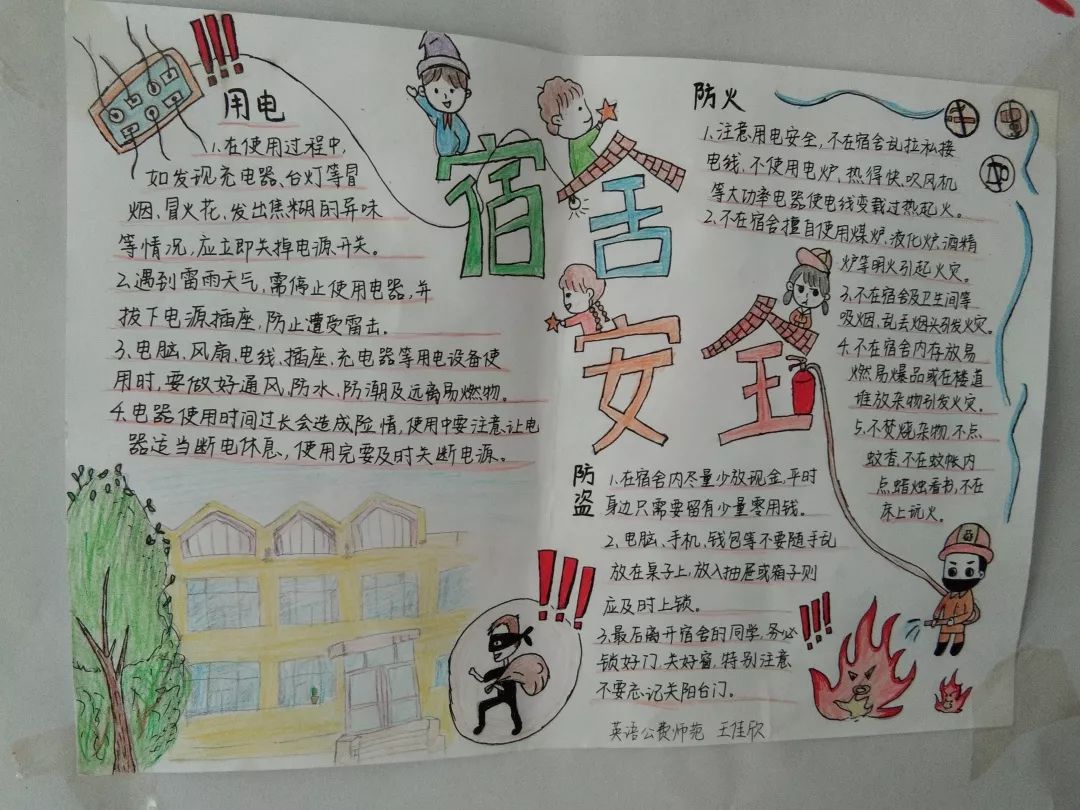 宿舍
安全
用电
1.在使用过程中,
如发现充电器、台灯等冒
烟、冒火花、发出焦糊的异味
等情况,应立即关掉电源开关。
2.遇到雷雨天气,需停止使用电器,并
拔下电源插座,防止遭受雷击。
3.电脑、风扇、电线、插座、充电器等用电设备使
用时,要做好通风、防水、防潮及远离易燃物。
4.电器使用时间过长会造成险情,使用中要注意让电
器适当断电休息,使用完要及时关断电源。
防火
1.注意用电安全,不在宿舍乱拉私接
电线,不使用电炉、热得快、吹风机
等大功率电器使电线变载过热起火。
2.不在宿舍擅自使用煤炉、液化炉、酒精
炉等明火引起火灾。
3.不在宿舍及卫生间等
吸烟、乱丢烟头引发火灾。
4.不在宿舍内存放易
燃易爆品或在楼道
堆放杂物引发火灾。
5.不焚烧杂物,不点
蚊香,不在蚊帐内
点蜡烛看书,不在
床上玩火。
防盗
1.在宿舍内尽量少放现金,平时
身边只需要留有少量零用钱。
2、电脑、手机、钱包等不要随手乱
放在桌子上,放入抽屉或箱子则
应及时上锁。
3.最后离开宿舍的同学,务必
锁好门,关好窗,特别注意
不要忘记关阳台门。
英语公费师范 王佳欣